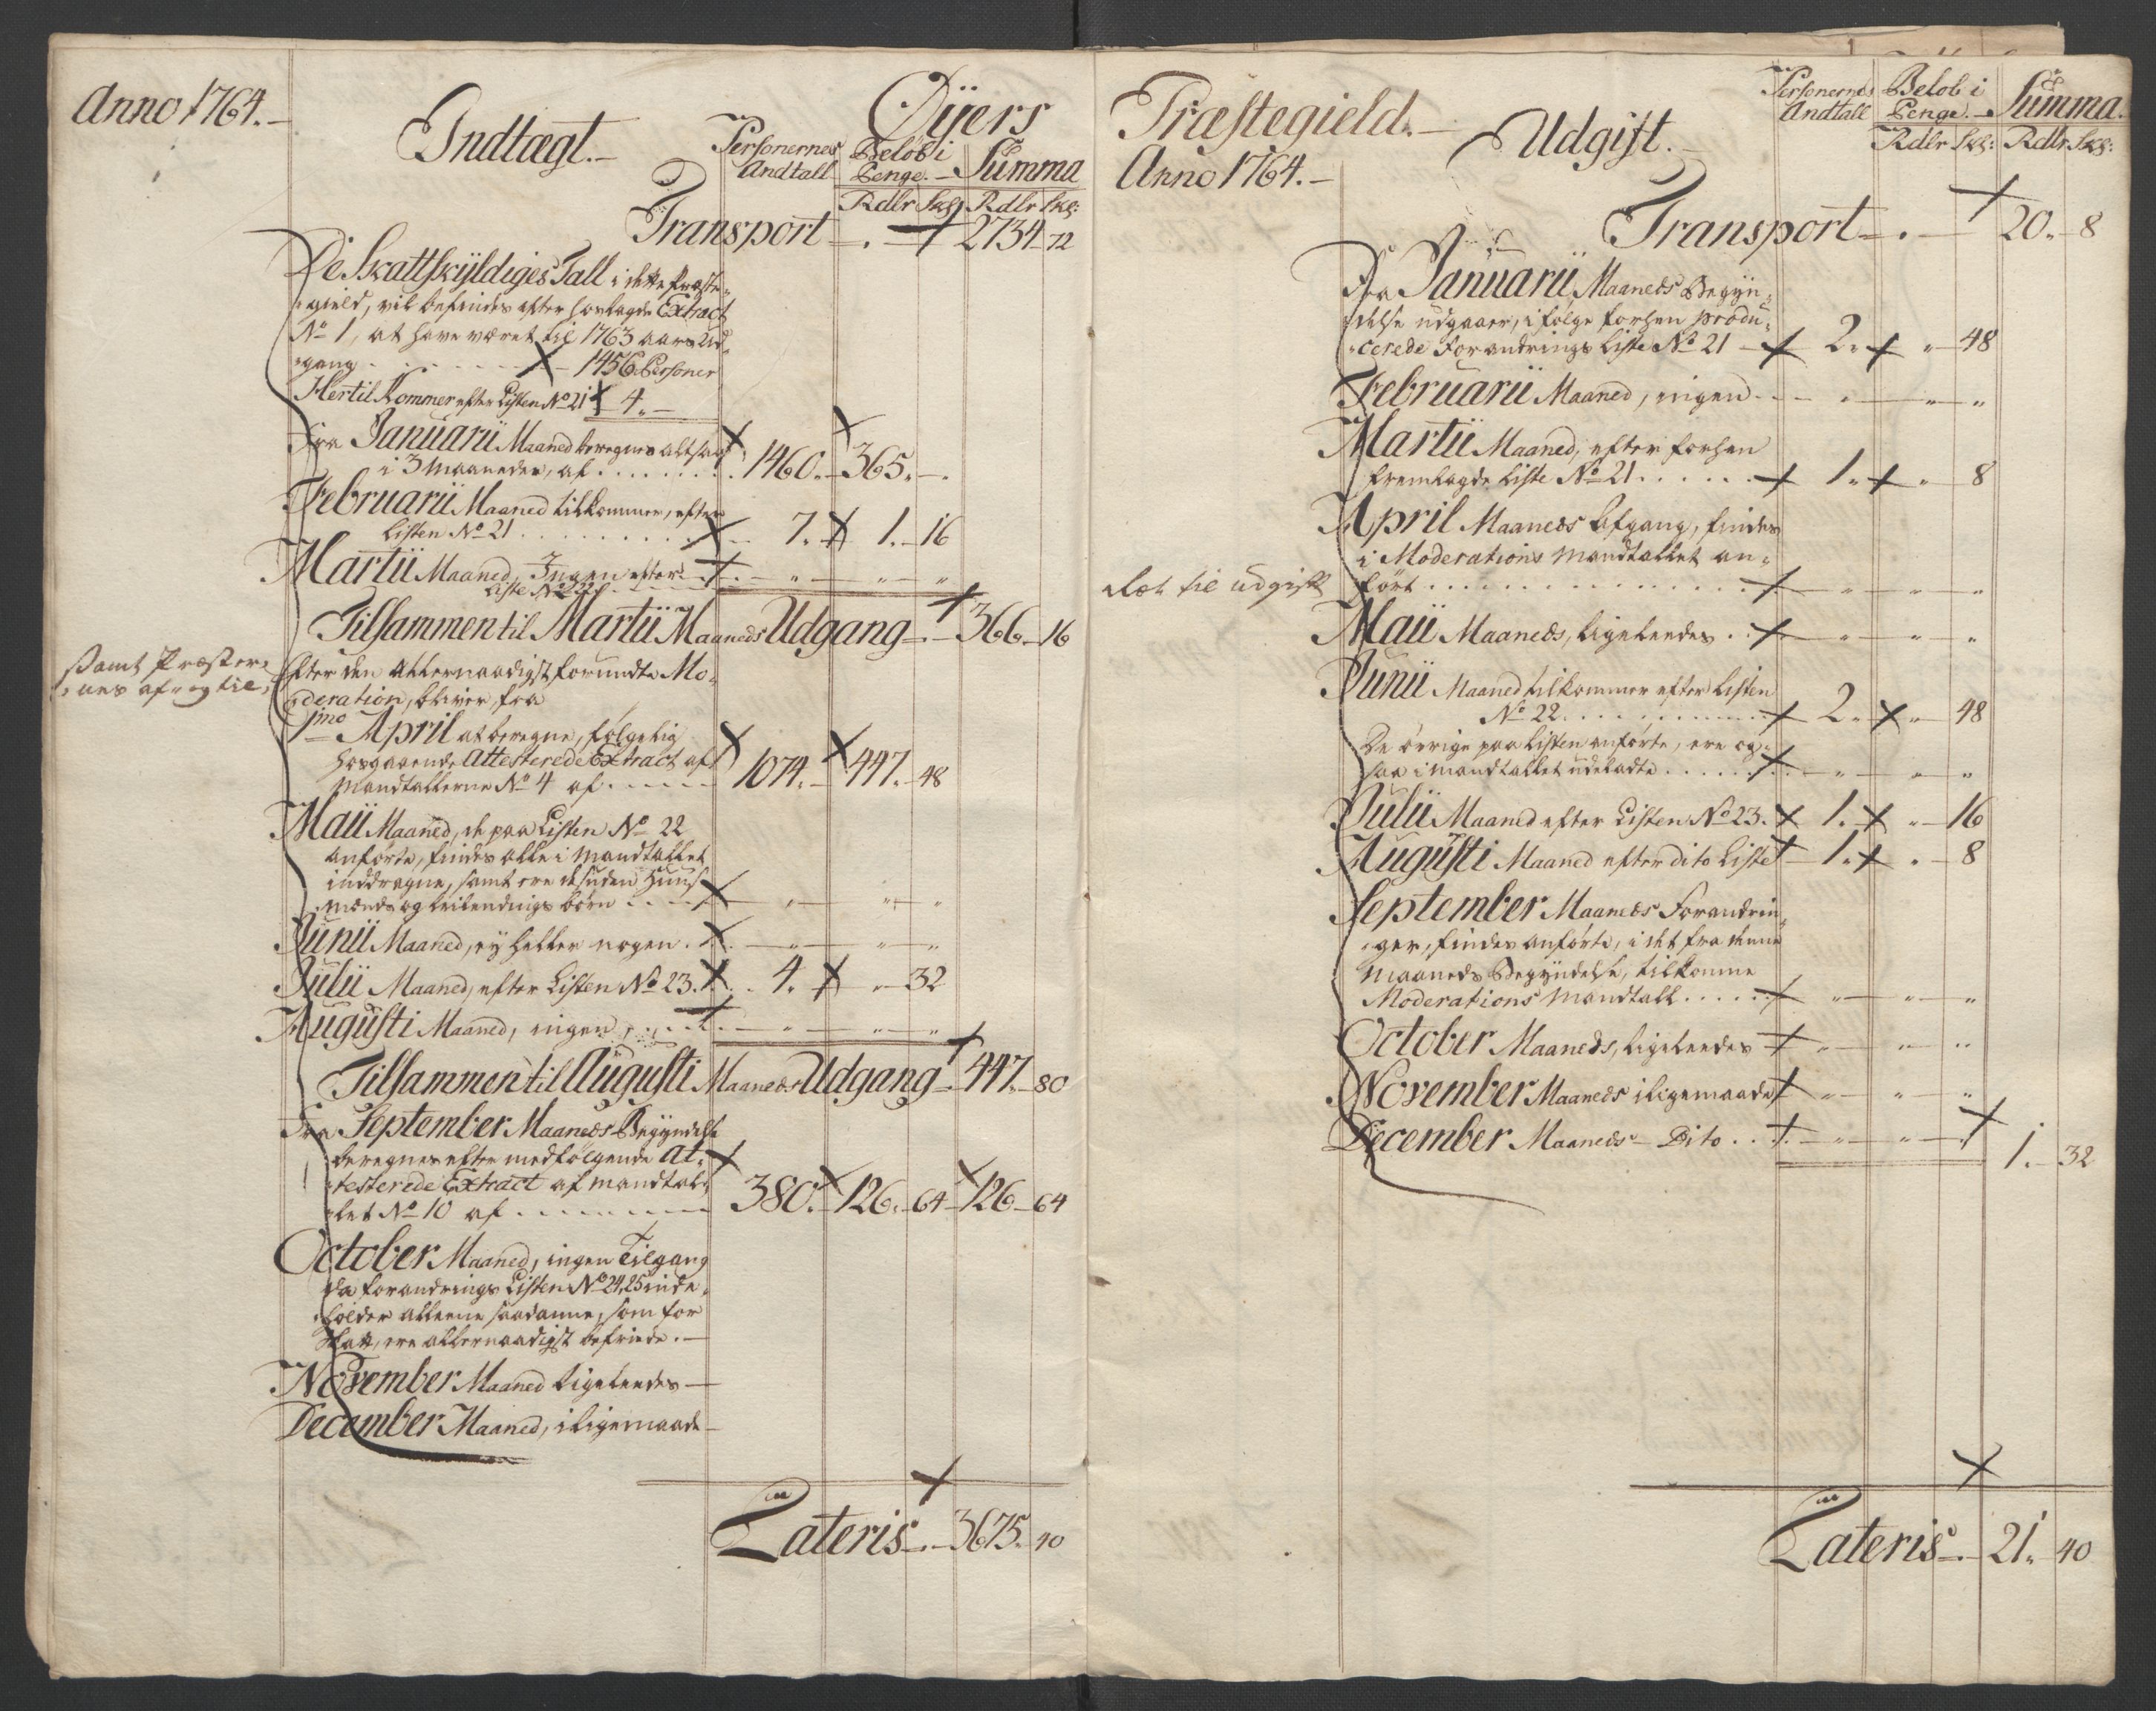 Anno 1764.
Indtægt.
Öÿers
Personernes Andtall
Beløb i Penge.
Summa
Rdlr Sks: Rdlr Sks:
Transport 2734 72
De Skattskÿldiges Tall i dette Præste-
gield, vil befindes efter hoslagde Extract
No 1, at have været til 1763 aars Ud-
gang 1456 Personer
Hertil Kommer efter Listen No 21 4.
Fra Januarii Maaned beregnes altsaa
i 3 Maaneder, af 1460. 365.
Februarii Maaned tilkommer, efter
Listen No 21 7. 1. 16
Martii Maaned, Ingen efter
Liste No 22
Tilsammen til Martii Maaneds Udgang 366. 16
samt Præster-
nes af- og til-
Efter den Allernaadigst forundte Mo-
deration, bliver fra
1mo April at beregne, følgelig
hosgaaende Attesterede Extract af
Mandtallerne No 4 af 1074. 447. 48
Maii Maaned, de paa Listen No 22
anførte, findes alle i Mandtallet
inddragne, samt ere desuden Huus-
mænds og leilendings børn
Junii Maaned, ej heller nogen.
Julii Maaned, efter Listen No 23. 4. 32
Augusti Maaned, ingen
Tilsammen til Augusti Maaneds Udgang 447. 80
Fra September Maaneds Begÿndelse
beregnes efter medfølgende At-
testerede Extract af Mandtal-
let No 10 af 380. 126. 64 126 64
October Maaned, ingen Tilgang
da forandrings Listen No 24, 25 inde-
holder alleene saadanne, som for
Skatt, ere allernaadigst befriede.
November Maaned ligeleedes
December Maaned, i ligemaade
Lateris 3675. 40
Præstegield.
Anno 1764.
Udgift.
Personernes Andtall
Beløb i Penge.
Summa.
Rdlr Sks: Rdlr Sks:
Transport 20. 8
Fra Januarii Maaneds Begÿn-
delse udgaaer, i følge forhen produ-
cerede Forandrings Liste No 21 2. 48
Februarii Maaned, ingen
Martii Maaned, efter forhen
fremlagde Liste No 21 1. 8
April Maaneds Afgang, findes
i Moderations Mandtallet an-
ført
til udgift
Maii Maaneds, ligeleedes
Junii Maaned tilkommer efter Listen
No 22 2. 48
De øvrige paa Listen anførte, ere og-
saa i Mandtallet udeladte
Julii Maaned efter Listen No 23. 1. 16
Augusti Maaned efter dito Liste 1. 8
September Maaneds Forandrin-
ger, findes anførte, i det fra denne
Maaneds Begÿndelse, tilkomne
Moderations Mandtall
October Maaneds, ligeleedes
November Maaneds i ligemaade
December Maaneds Dito 1. 32
Lateris 21. 40